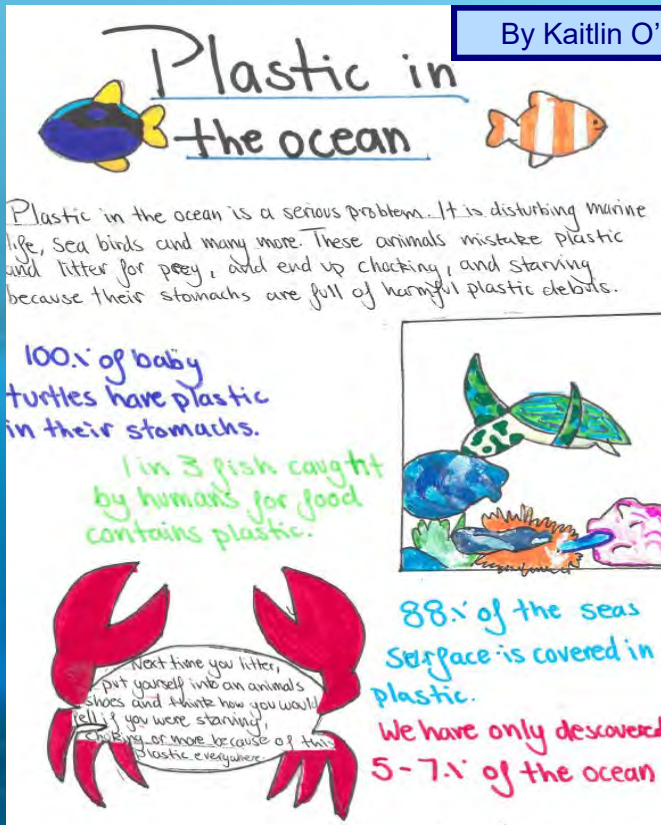 By Kaitlin O'
Plastic in
the ocean
Plastic in the ocean is a serious problem. It is disturbing marine
life, sea birds and many more. These animals mistake plastic
and litter for prey, and end up chocking, and starving
because their stomachs are full of harmful plastic debris.
100% of baby
turtles have plastic
in their stomachs.
1 in 3 fish caught
by humans for food
contains plastic.
88% of the seas
surface is covered in
plastic.
We have only descovered
5-7% of the ocean
Next time you litter,
put yourself into an animals
shoes and think how you would
fell if you were starving,
choking or more because of this
plastic everywhere.